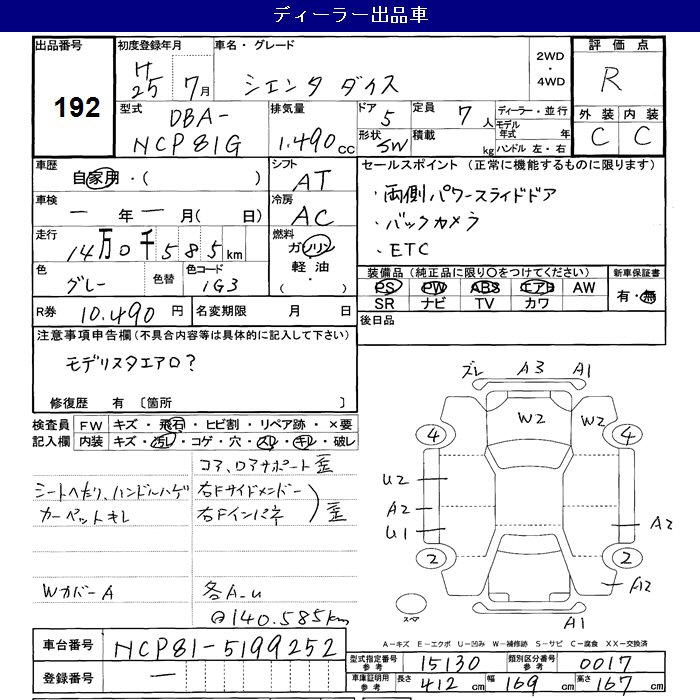 ディーラー出品車
出品番号
192
初度登録年月
H25年 7月
車名・グレード
シエンタ ダイス
2WD
・
4WD
評価点
R
型式
DBA-
NCP81G
排気量
1.490 cc
ドア
5
定員 7人
ディーラー・並行
モデル年式 年
形状
SW
積載 kg
ハンドル 左・右
外装 内装
C C
車歴
自家用・( )
シフト
AT
車検
一 年 一 月( 日)
冷房
AC
走行
14万0千585km
燃料
ガソリン
軽油
・( )
色
グレー
色替
色コード
1G3
R券 10.490円
名変期限 月 日
セールスポイント (正常に機能するものに限ります)
・両側パワースライドドア
・バックカメラ
・ETC
装備品 (純正品に限り○をつけてください)
PS PW ABS エアB AW
SR ナビ TV カワ
新車保証書
有・無
後日品
注意事項申告欄(不具合内容等は具体的に記入して下さい)
モデリスタエアロ?
修復歴 有 〔箇所 〕
検査員記入欄
FW キズ・飛石・ヒビ割・リペア跡・×要
内装 キズ・汚れ・コゲ・穴・スレ・キレ・破レ
コア、ロアサポート歪
シートへたり、ハンドルハゲ
カーペットキレ
右Fサイドメンバー
右Fインパネ
歪
Wカバー A
各A-u
@140.585km
ズレ A3 A1
W2 W2
4 4
U2
A2
U1
A2
2 2
A2
A1
スペア
A－キズ E－エクボ U－凹み W－補修跡 S－サビ C－腐食 XX－交換済
車台番号 NCP81-5199252
登録番号 一
型式指定番号参考 15130
類別区分番号参考 0017
車庫証明用参考 長さ 412 cm 幅 169 cm 高さ 167 cm